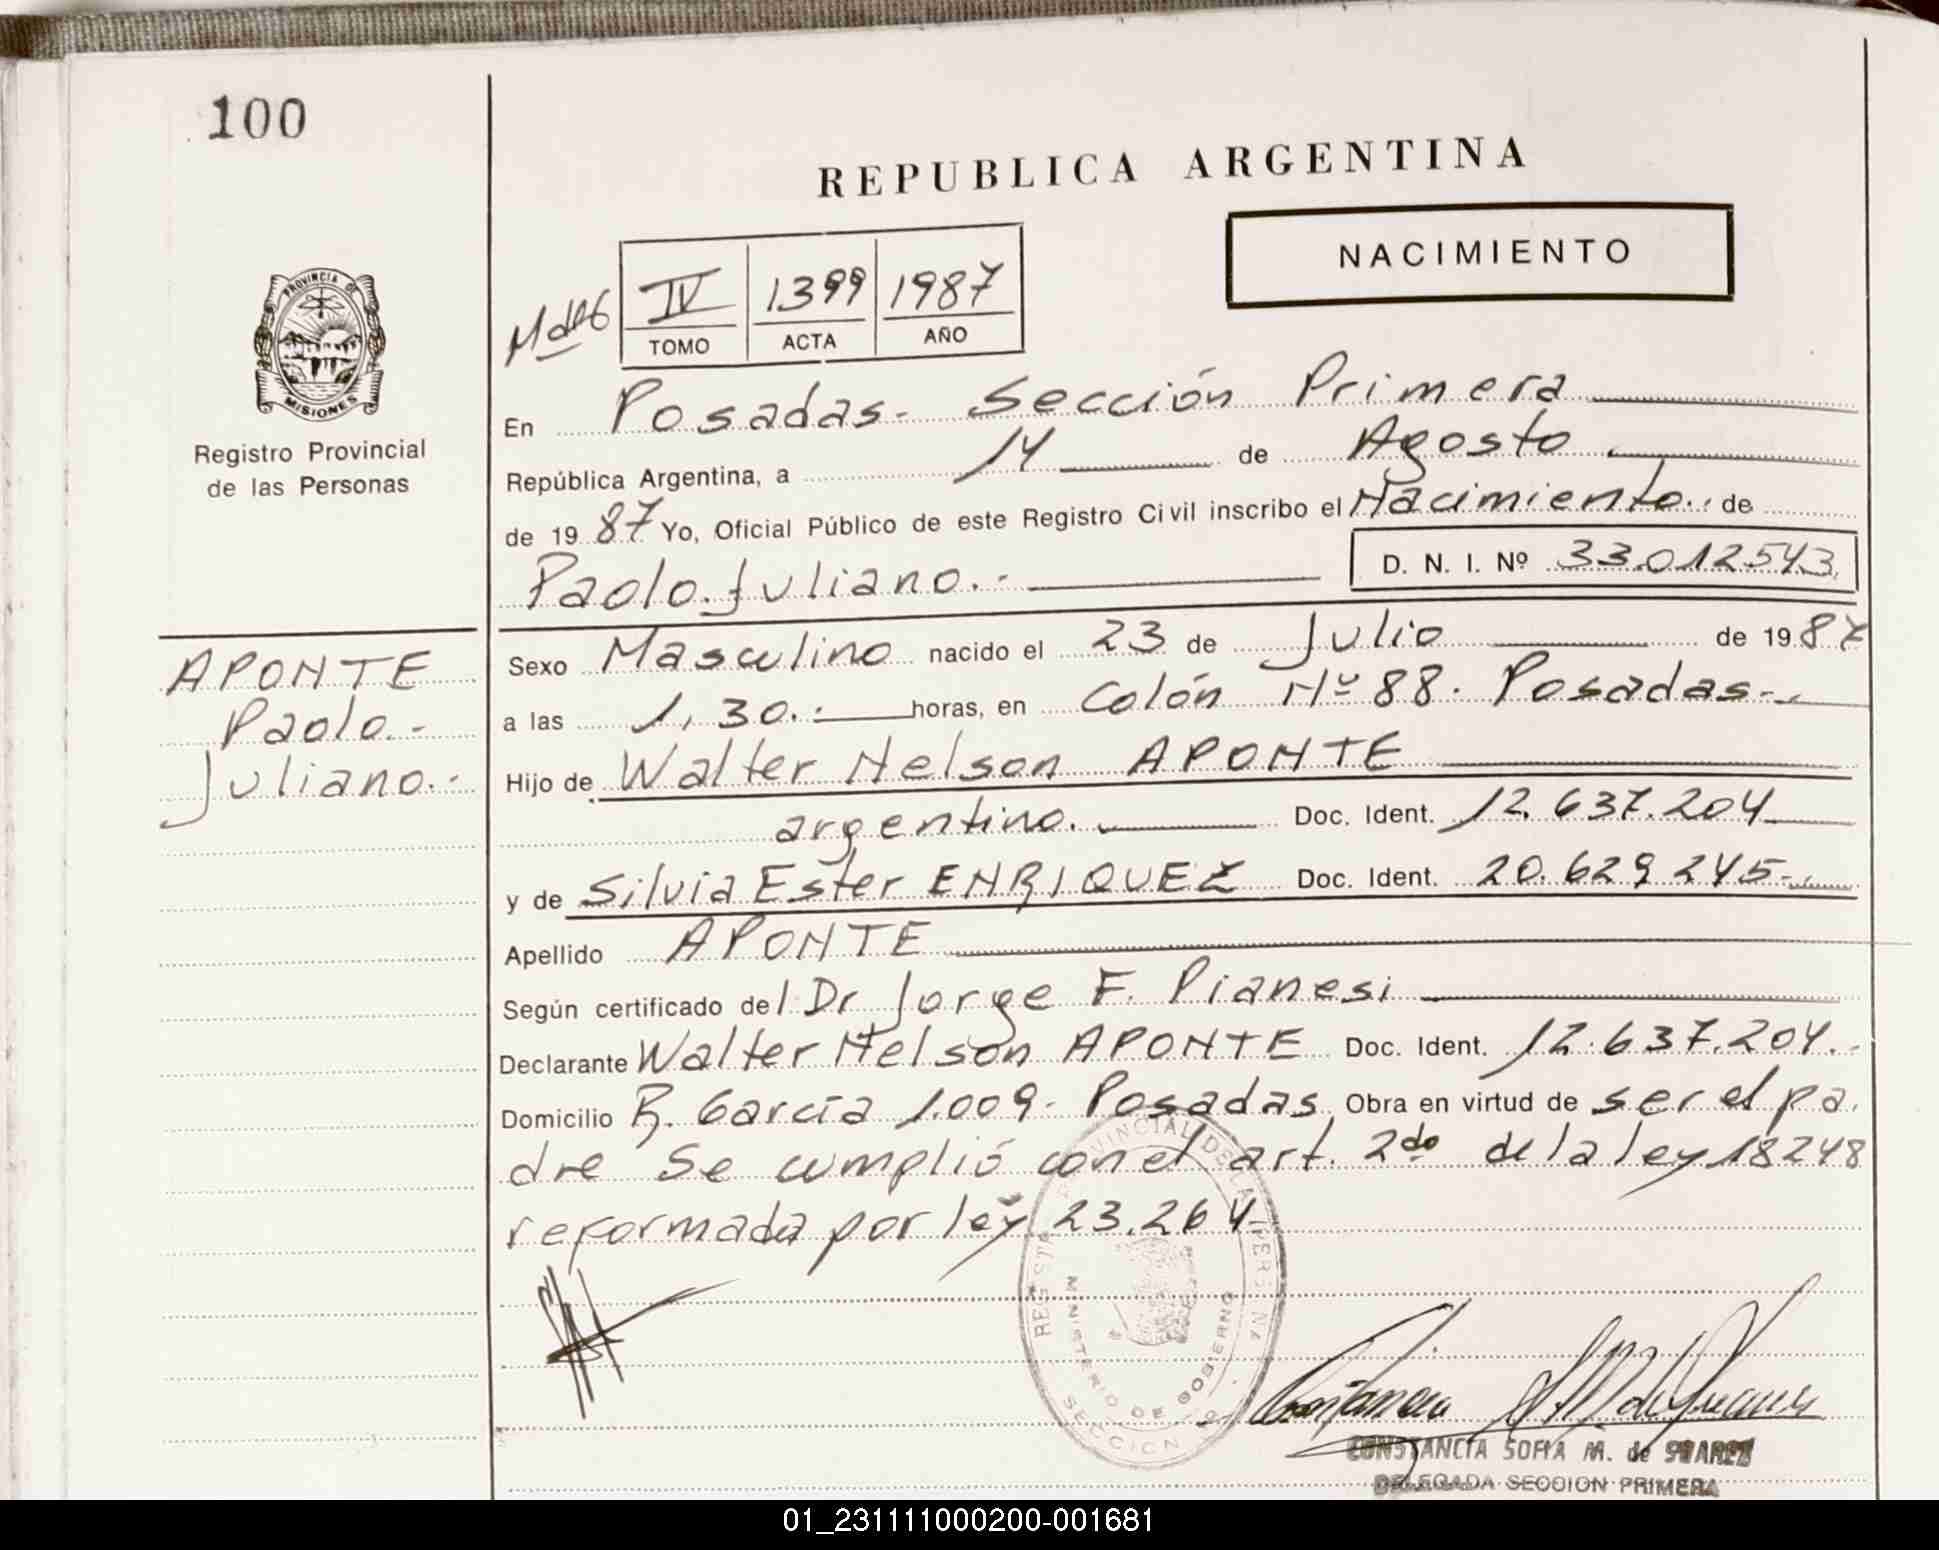 100
REPUBLICA ARGENTINA
NACIMIENTO
PROVINCIA DE
MISIONES
Registro Provincial
de las Personas
IV 1399 1987
TOMO ACTA AÑO
En Posadas.- Sección Primera
República Argentina, a 14 de Agosto
de 19 87 Yo, Oficial Público de este Registro Civil inscribo el Nacimiento.. de
Paolo Juliano.- D. N. I. Nº 33.012543
APONTE
Paolo.-
Juliano.-
Sexo Masculino nacido el 23 de Julio de 19 87
a las 1,30.- horas, en Colón Nº 88. Posadas.-
Hijo de Walter Nelson APONTE
argentino. Doc. Ident. 12.637.204
y de Silvia Ester ENRIQUEZ Doc. Ident. 20.629.245-
Apellido APONTE
Según certificado del Dr Jorge F. Pianesi
Declarante Walter Nelson APONTE Doc. Ident. 12.637.204.-
Domicilio R. García 1.009- Posadas Obra en virtud de ser el pa.
dre Se cumplió con el art. 2do de la ley 18248
reformada por ley 23.264-
MINISTERIO DE GOBIERNO
SECCION
CONSTANCIA SOFIA M. de SUAREZ
DELEGADA SECCION PRIMERA
01_231111000200-001681